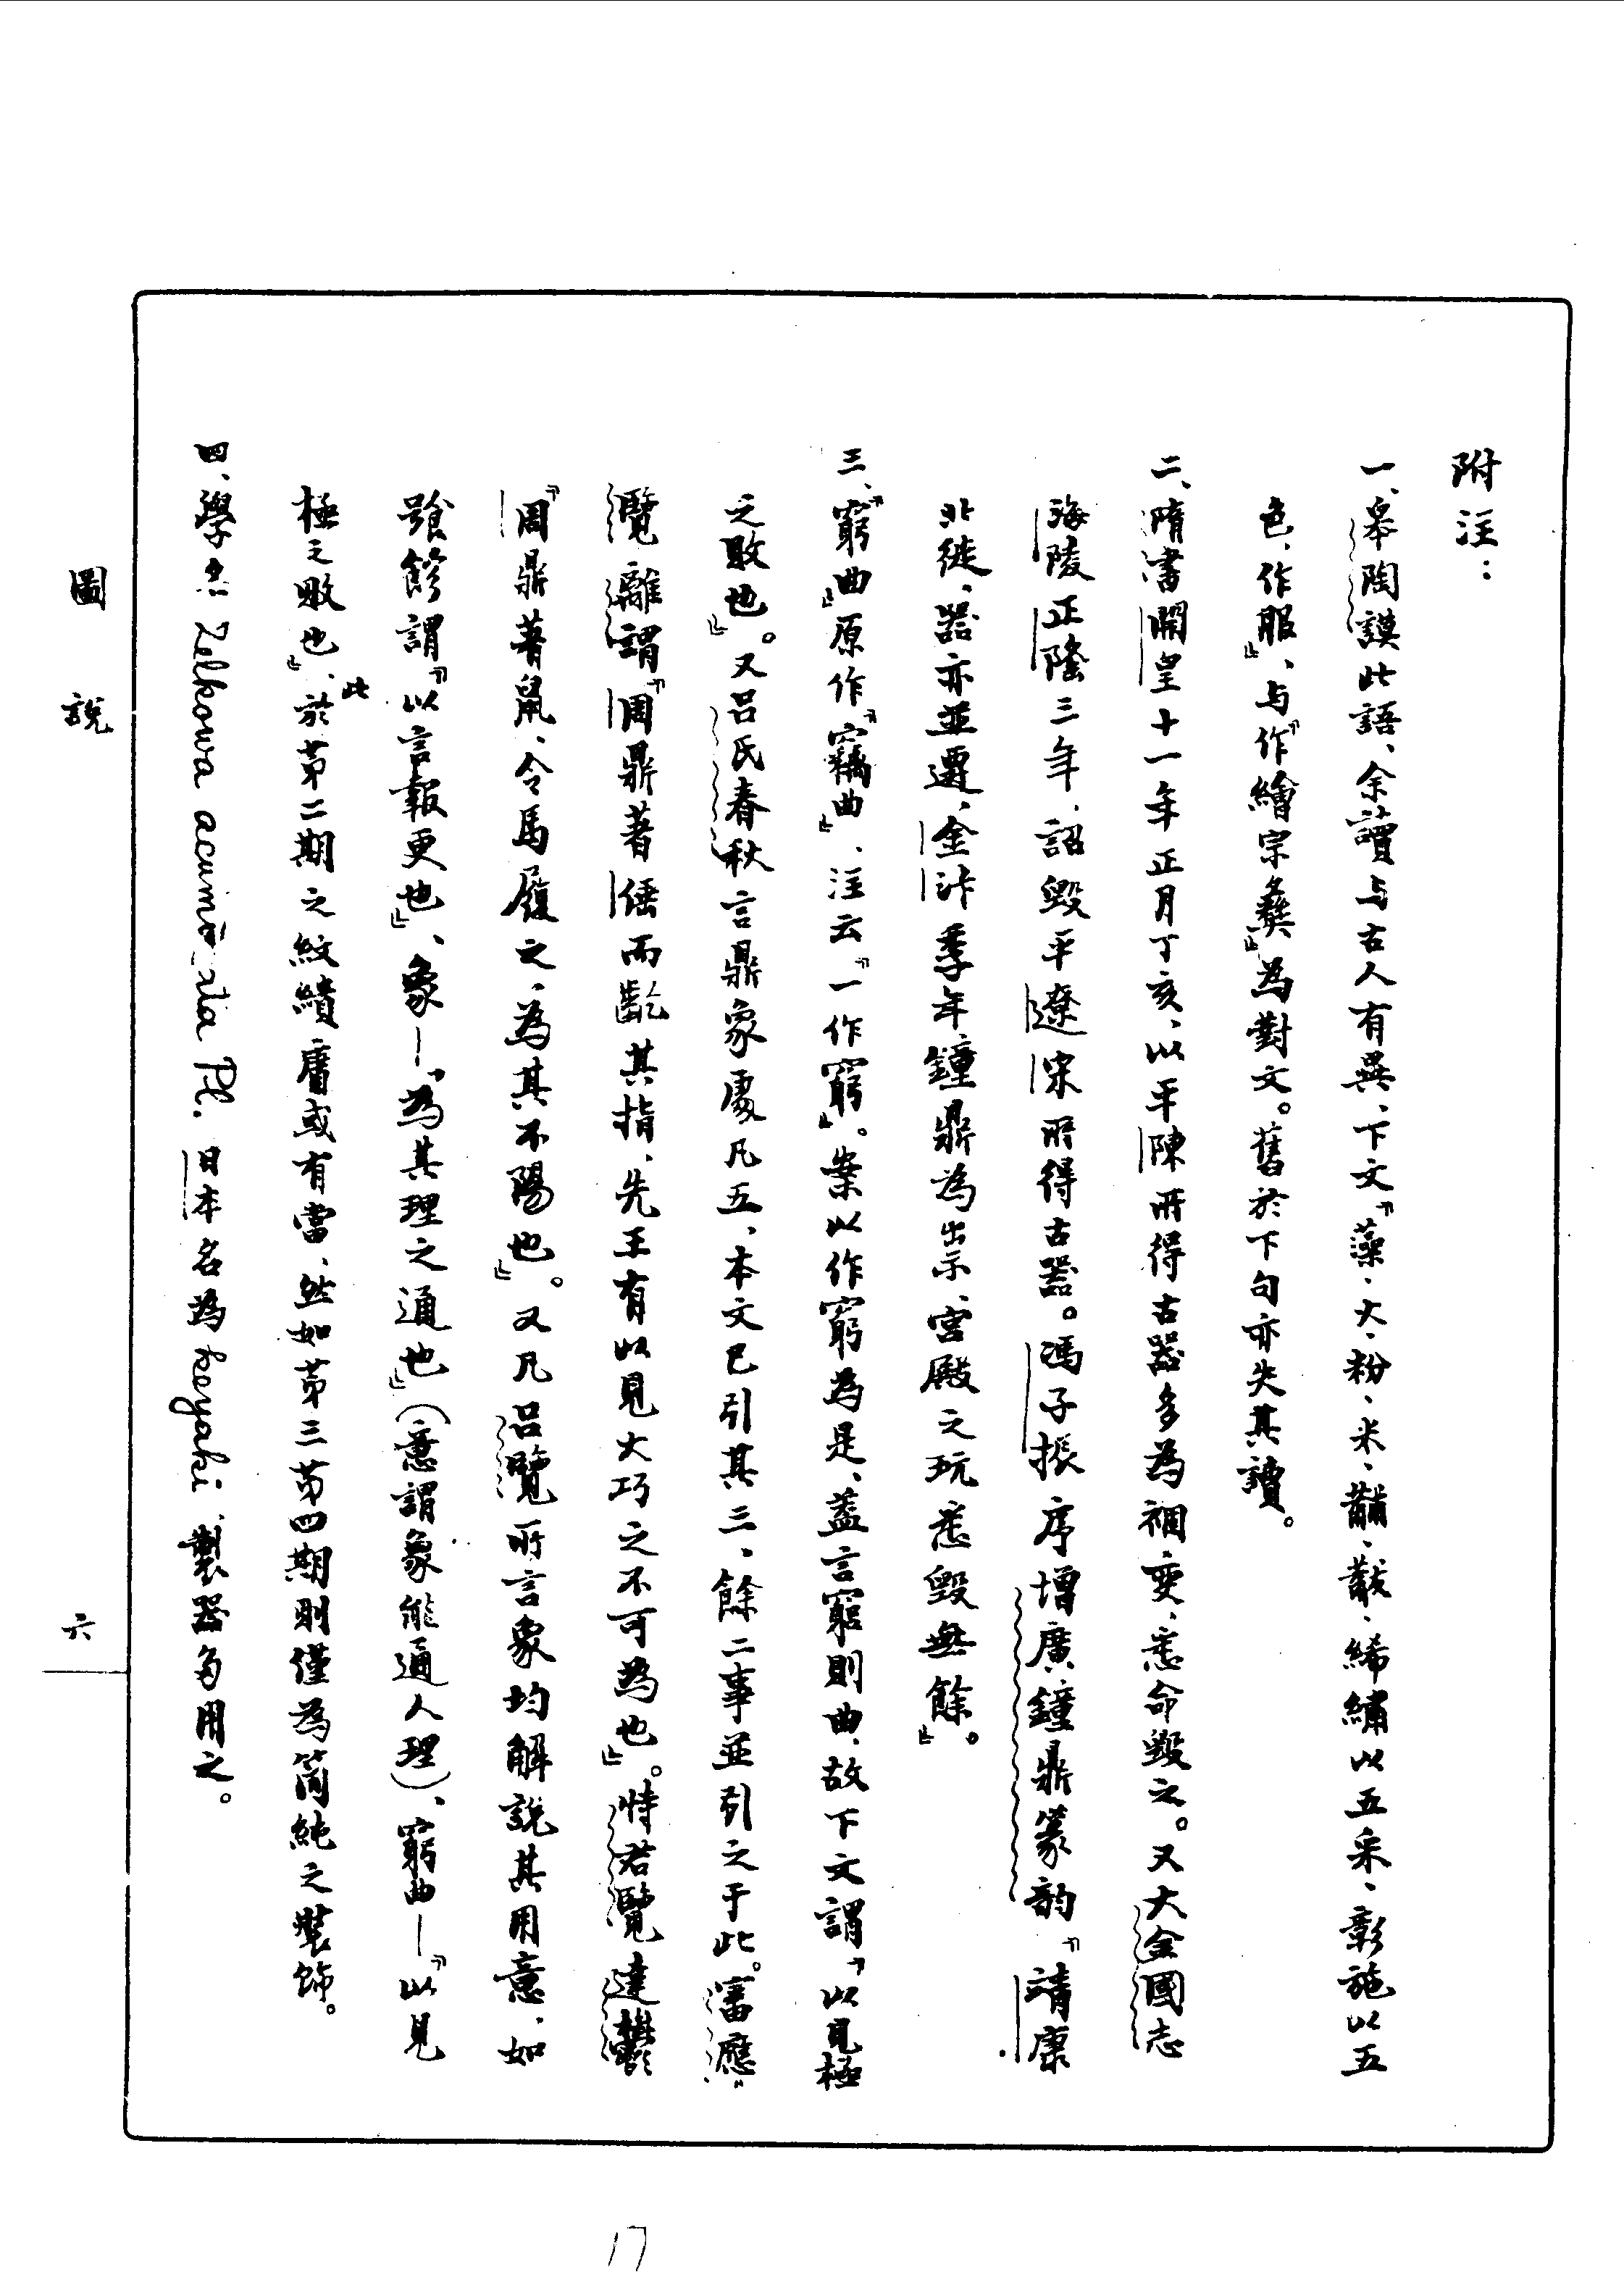 附注：
一、皋陶謨此語、余讀与古人有異、下文『藻、火、粉、米、黼、黻、絺繡以五采、彰施以五
色、作服』、与『作繪宗彝』為對文。舊於下句亦失其讀。
二、隋書開皇十一年正月丁亥、以平陳所得古器多為禍變、悉命毀之。又大金國志
海陵正隆三年、詔毀平遼宋所得古器。馮子振序增廣鐘鼎篆韵、『靖康
北徙、器亦並遷、金汴季年、鐘鼎為祟、宮殿之玩悉毀無餘』。
三、『窮曲』原作『竊曲』、注云『一作窮』。案以作窮為是、蓋言窮則曲、故下文謂『以見極
之敗也』。又呂氏春秋言鼎象處凡五、本文已引其三、餘二事並引之于此。審應
覽離謂『周鼎著倕而齕其指、先王有以見大巧之不可為也』。恃君覽達鬱
『周鼎著鼠、令馬履之、為其不陽也』。又凡呂覽所言象均解說其用意、如
饕餮謂『以言報更也』、象—『為其理之通也』（意謂象能通人理）、窮曲—『以見
極之敗也』、此於第二期之紋繢庸或有當、然如第三第四期則僅為簡純之裝飾。
四、學名 Zelkowa acuminata Pl. 日本名為 keyaki、製器多用之。
圖說
六
17